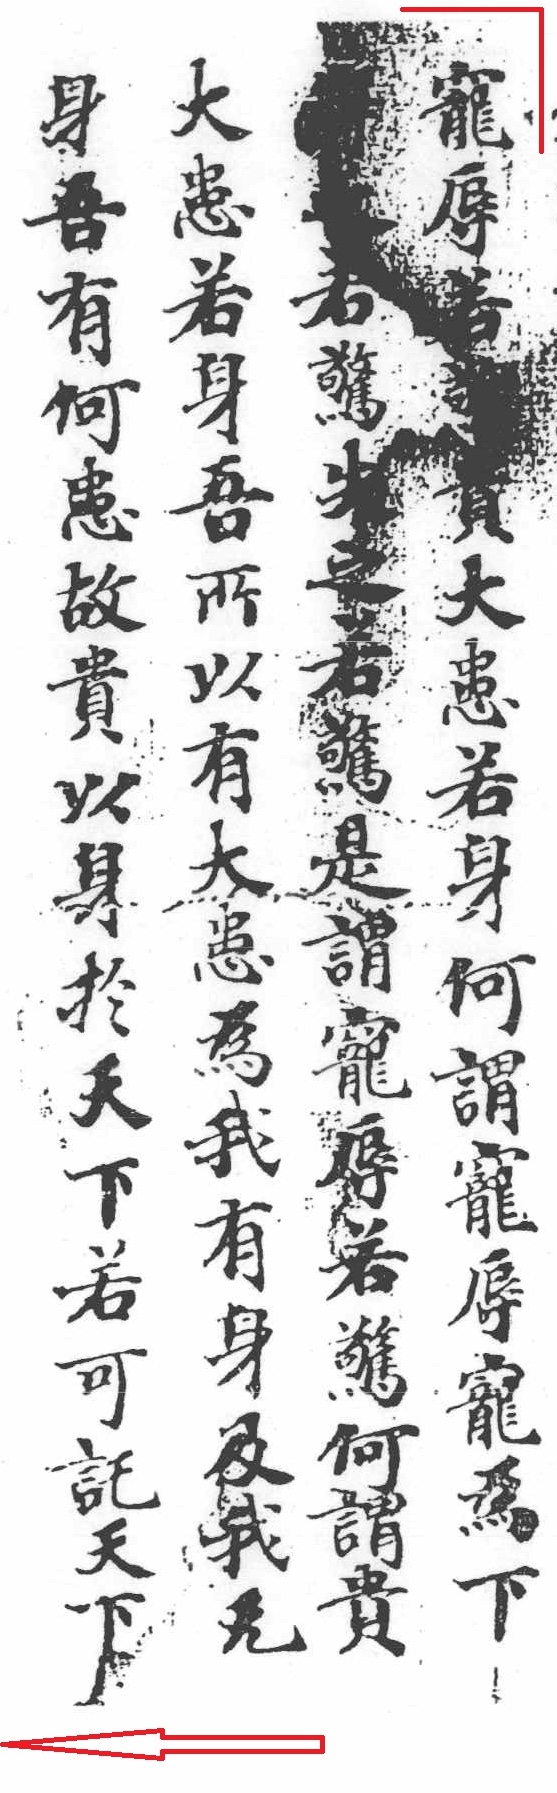 寵辱若貴大患若身何謂寵辱寵爲下
若驚失之若驚是謂寵辱若驚何謂貴
大患若身吾所以有大患爲我有身及我无
身吾有何患故貴以身於天下若可託天下